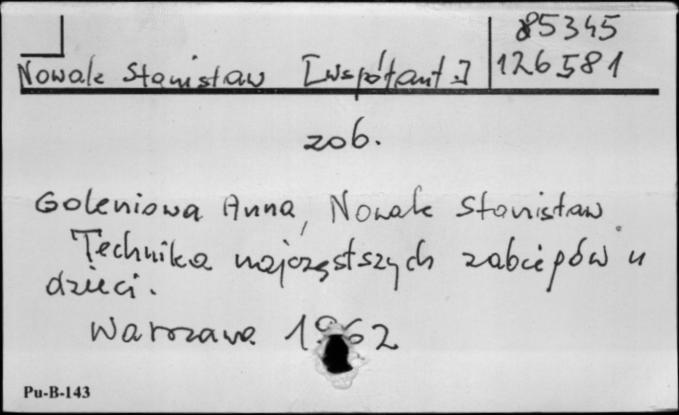 85345
Nowak Stanisław [współaut.] 126581
zob.
Goleniowa Anna, Nowak Stanisław.
Technika najczęstszych zabiegów u
dzieci.
Warszawa 1962
Pu-B-143